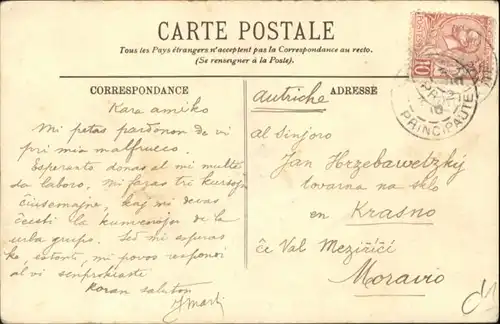 CARTE POSTALE
Tous les Pays étrangers n'acceptent pas la Correspondance au recto.
(Se renseigner à la Poste).
CORRESPONDANCE
Kara amiko
Mi petas pardonon de vi
pri mia malfrueco.
Esperanto donas al mi multe
da laboro. Mi faras tri kursojn
ĉiusemajne, kaj mi devas
ĉeesti la kunvenojn de la
urba grupo. Sed mi esperas
ke, estonte, mi povos respondi
al vi senprokraste
Koran saluton
ADRESSE
Autriche
al Sinjoro
Jan Hrzebawetzký
tovarna na sklo
en Krasno
ĉe Val Meziříčí
Moravio
10
PRINCIPAUTE